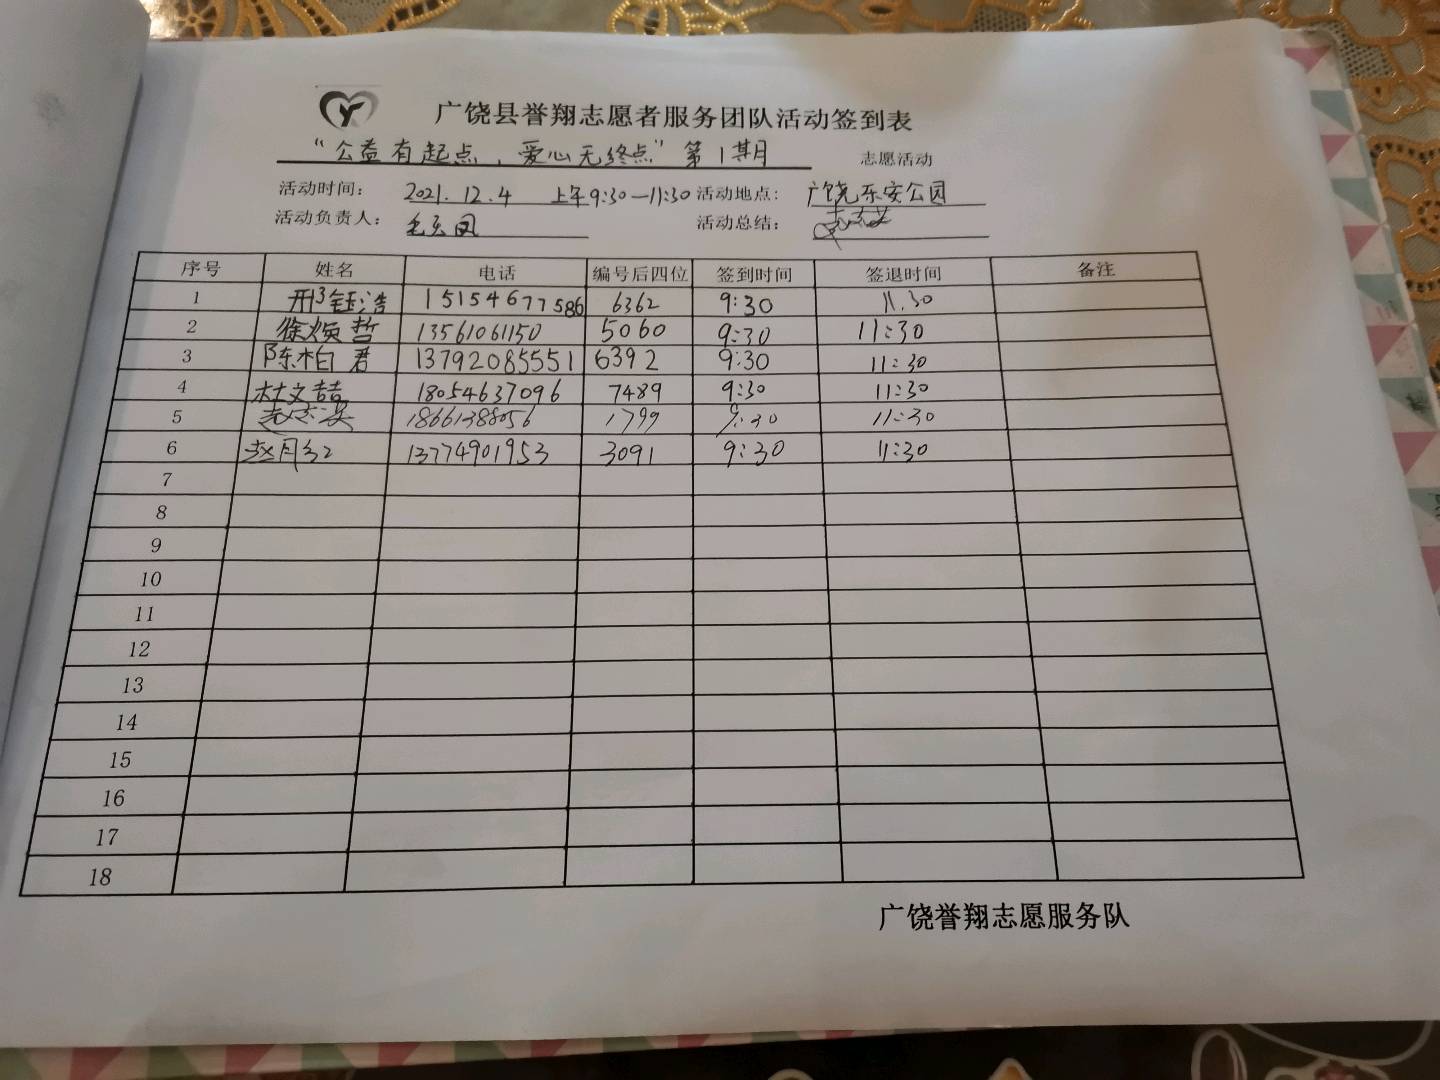 广饶县誉翔志愿者服务团队活动签到表
“公益有起点，爱心无终点”第1期 志愿活动
活动时间： 2021.12.4 上午9:30—11:30 活动地点： 广饶乐安公园
活动负责人： 活动总结：
序号 姓名 电话 编号后四位 签到时间 签退时间 备注
1 邢钰浩 15154677586 6362 9:30 11.30
2 徐焕哲 13561061150 5060 9:30 11:30
3 陈柏君 13792085551 6392 9:30 11:30
4 杜文喆 18054637096 7489 9:30 11:30
5 18661388056 1799 9:30 11:30
6 赵月红 13774901953 3091 9:30 11:30
7
8
9
10
11
12
13
14
15
16
17
18
广饶誉翔志愿服务队